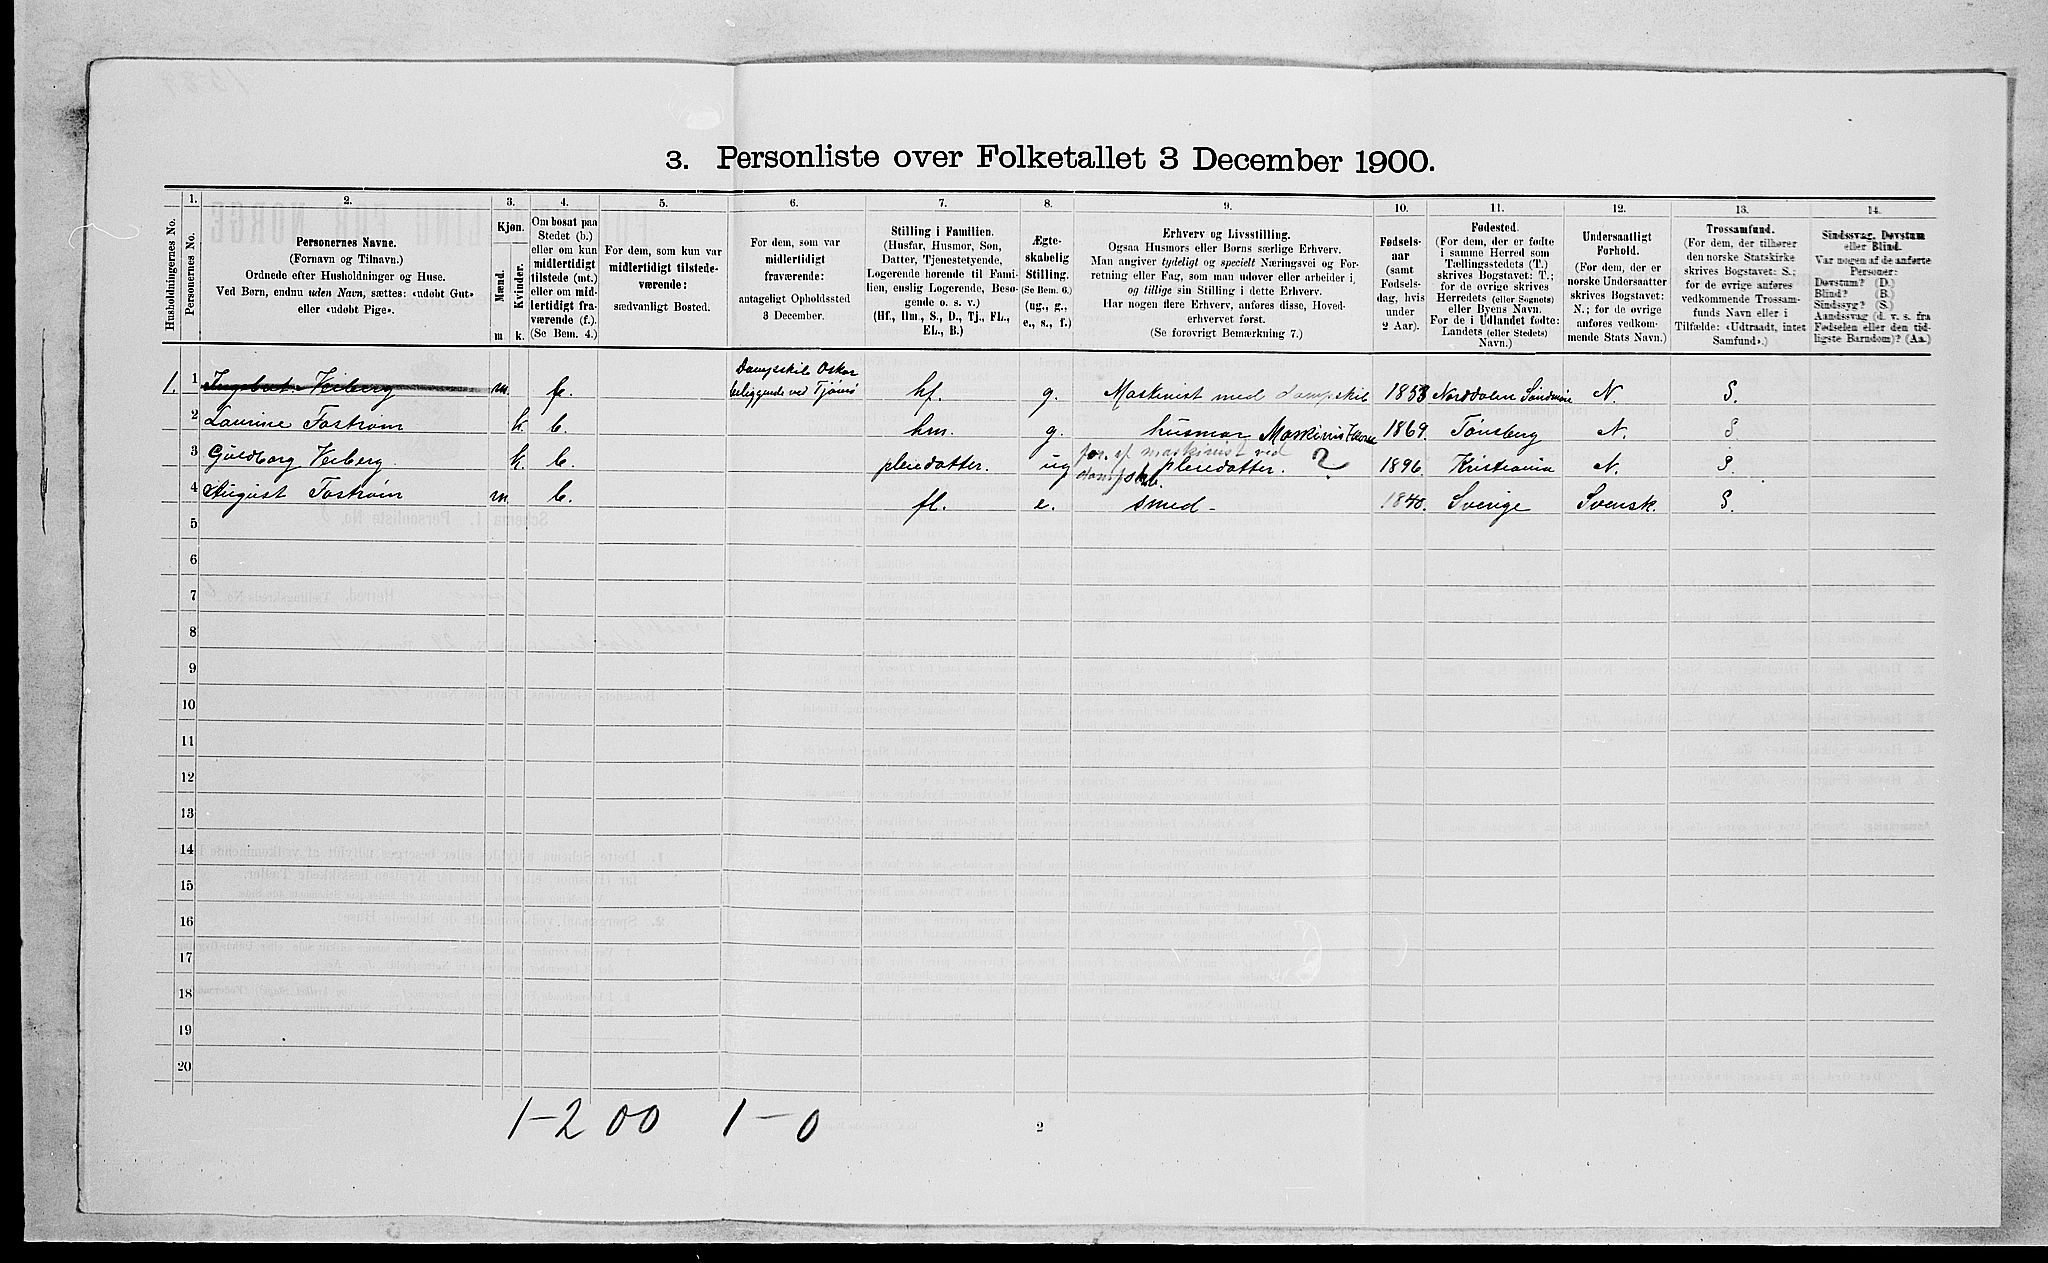 3. Personliste over Folketallet 3 December 1900.
Husholdningernes No.
1.
Personernes No.
2.
Personernes Navne.
(Fornavn og Tilnavn.)
Ordnede efter Husholdninger og Huse.
Ved Børn, endnu uden Navn, sættes: «udøbt Gut»
eller «udøbt Pige».
3.
Kjøn.
Mænd.
Kvinder.
m k.
4.
Om bosat paa
Stedet (b.)
eller om kun
midlertidigt
tilstede (mt.)
eller om mid-
lertidigt fra-
værende (f.)
(Se Bem. 4.)
5.
For dem, som kun var
midlertidigt tilstede-
værende:
sædvanligt Bosted.
6.
For dem, som var
midlertidigt
fraværende:
antageligt Opholdssted
3 December.
7.
Stilling i Familien.
(Husfar, Husmor, Søn,
Datter, Tjenestetyende,
Logerende hørende til Fami-
lien, enslig Logerende, Besø-
gende o. s. v.)
(Hf., Hm., S., D., Tj., FL.,
EL., B.)
8.
Ægte-
skabelig
Stilling.
(Se Bem. 6.)
(ug., g.,
e., s., f.)
9.
Erhverv og Livsstilling.
Ogsaa Husmors eller Børns særlige Erhverv.
Man angiver tydeligt og specielt Næringsvei og For-
retning eller Fag, som man udøver eller arbeider i,
og tillige sin Stilling i dette Erhverv.
Har nogen flere Erhverv, anføres disse, Hoved-
erhvervet først.
(Se forøvrigt Bemærkning 7.)
10.
Fødsels-
aar
(samt
Fødsels-
dag, hvis
under
2 Aar).
11.
Fødested.
(For dem, der er fødte
i samme Herred som
Tællingsstedets (T.)
skrives Bogstavet: T.;
for de øvrige skrives
Herredets (eller Sognets)
eller Byens Navn.
For de i Udlandet fødte:
Landets (eller Stedets)
Navn.)
12.
Undersaatligt
Forhold.
(For dem, der er
norske Undersaatter
skrives Bogstavet:
N.; for de øvrige
anføres vedkom-
mende Stats Navn.)
13.
Trossamfund.
(For dem, der tilhører
den norske Statskirke
skrives Bogstavet: S.;
for de øvrige anføres
vedkommende Trossam-
funds Navn eller i
Tilfælde: «Udtraadt, intet
Samfund».)
14.
Sindssvag, Døvstum
eller Blind.
Var nogen af de anførte
Personer:
Døvstum? (D.)
Blind? (B.)
Sindssyg? (S.)
Aandssvag (d. v. s. fra
Fødselen eller den tid-
ligste Barndom)? (Aa.)
1. 1 Ingebret Veiberg m. f. Dampskib Oskar beliggende ved Tjømø hf. g. Maskinist med Dampskib 1853 Norddalen Søndmøre N. S.
2 Laurine Fostrøm k. b. hm. g. husmor 1869. Tønsberg N. S
3 Guldborg Veiberg. k. b. pleiedatter. ug for. af maskinist ved dampskib. pleiedatter. ? 1896. Kristiania N. S.
4 August Fostrøm m. b. fl. e. smed - 1840. Sverige Svensk. S.
5
6
7
8
9
10
11
12
13
14
15
16
17
18
19
20
1-2 00 1-0
2